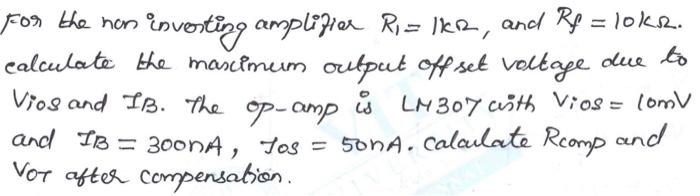 For the non inverting amplifier R₁ = 1kΩ, and Rf = 10kΩ.
calculate the maximum output offset voltage due to
Vios and IB. The op-amp is LM307 with Vios = 10mV
and IB = 300nA, Ios = 50nA. Calculate Rcomp and
VOT after compensation.